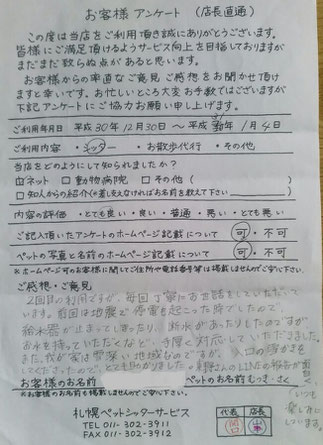 お客様アンケート (店長直通)
この度は当店をご利用頂き誠にありがとうございます。
皆様にご満足頂けるようサービス向上を目指しておりますが
まだまだ致らぬ点があると思います。
お客様からの率直なご意見ご感想をお聞かせ頂け
ますと幸いです。お忙しいところ大変お手数ではございますが
下記アンケートにご協力お願い申し上げます。
ご利用年月日 平成30年12月30日 〜 平成31年1月4日
ご利用内容 ・シッター ・お散歩代行 ・その他
当店をどのようにして知られましたか?
□ネット □動物病院 □その他( )
□知人からの紹介(※差し支えなければお名前を教えて下さい )
内容の評価 ・とても良い ・良い ・普通 ・悪い ・とても悪い
ご記入頂いたアンケートのホームページ記載について 可・不可
ペットの写真と名前のホームページ記載について 可・不可
※ホームページ可のお客様に関してご住所や電話番号等は掲載しませんのでご安心下さい。
ご感想・ご意見
2回目の利用ですが、毎回丁寧にお世話をしていただいて
います。前回は地震で停電を起こった時でしたので、
給水器が止まってしまったり、断水があったりしたのですが
お水を持っていただくなど、手厚く対応していただきました。
また、我が家は雪深い地域なのですが、入口の雪かきを
してくださったので、とても助かりました。
いつも
楽しみに
しています。
お客様のお名前 ペットのお名前 むっき・さく
※お客様のお名前を掲載しませんのでご安心下さい。
札幌ペットシッターサービス
TEL 011-302-3911
FAX 011-302-3912
代表 店長